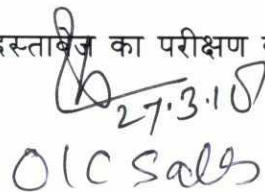 दस्तावेज का परीक्षण
27.3.18
OIC Sales